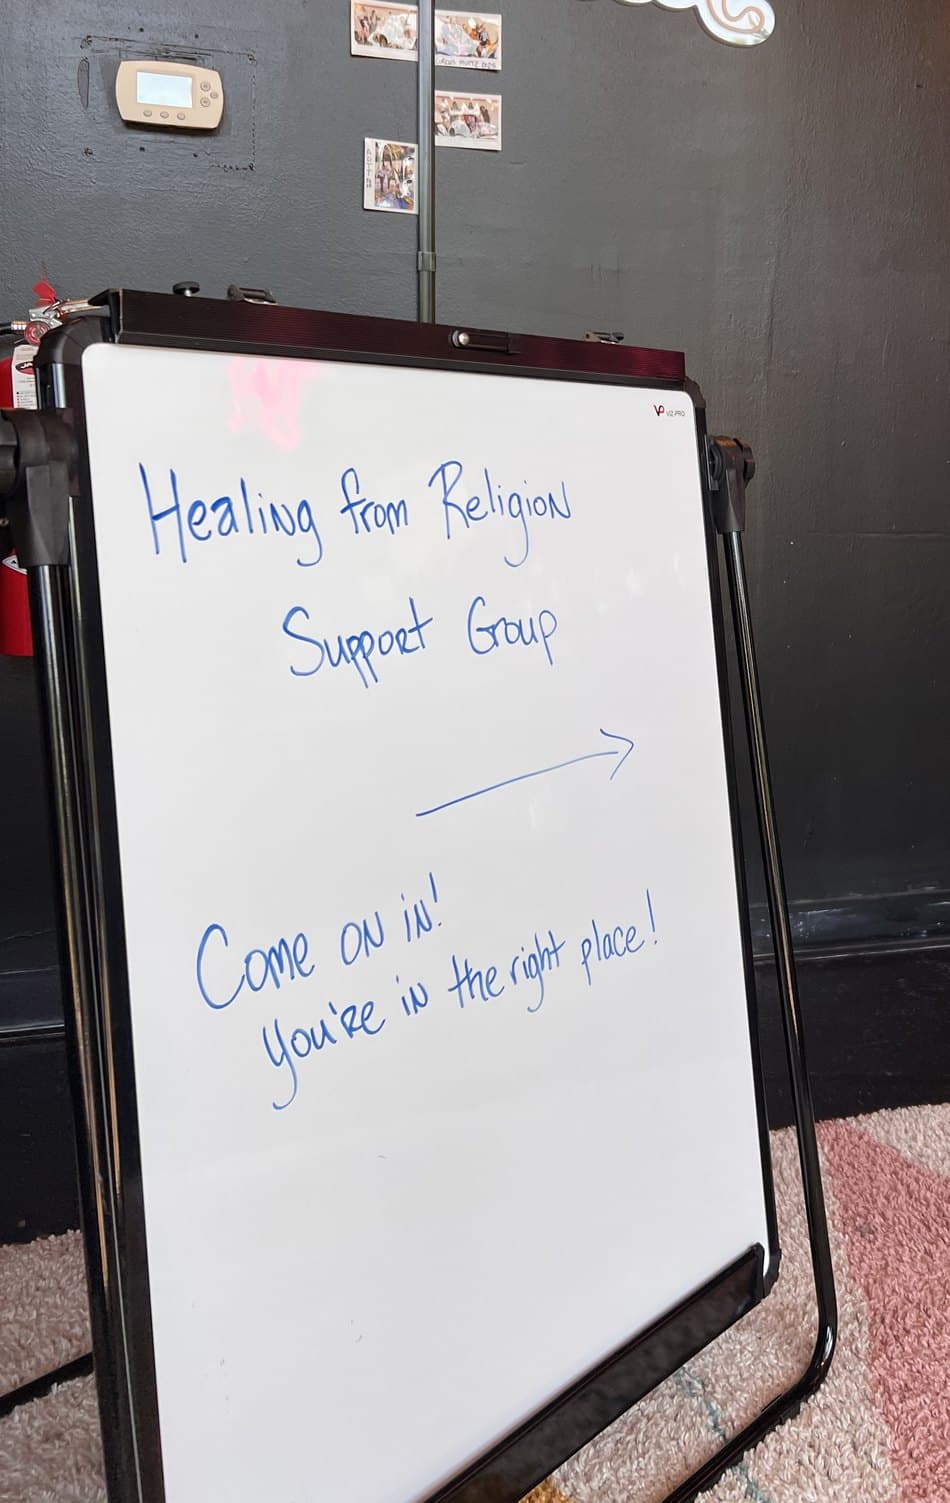 VIZ-PRO
Healing from Religion
Support Group
Come on in!
You're in the right place!